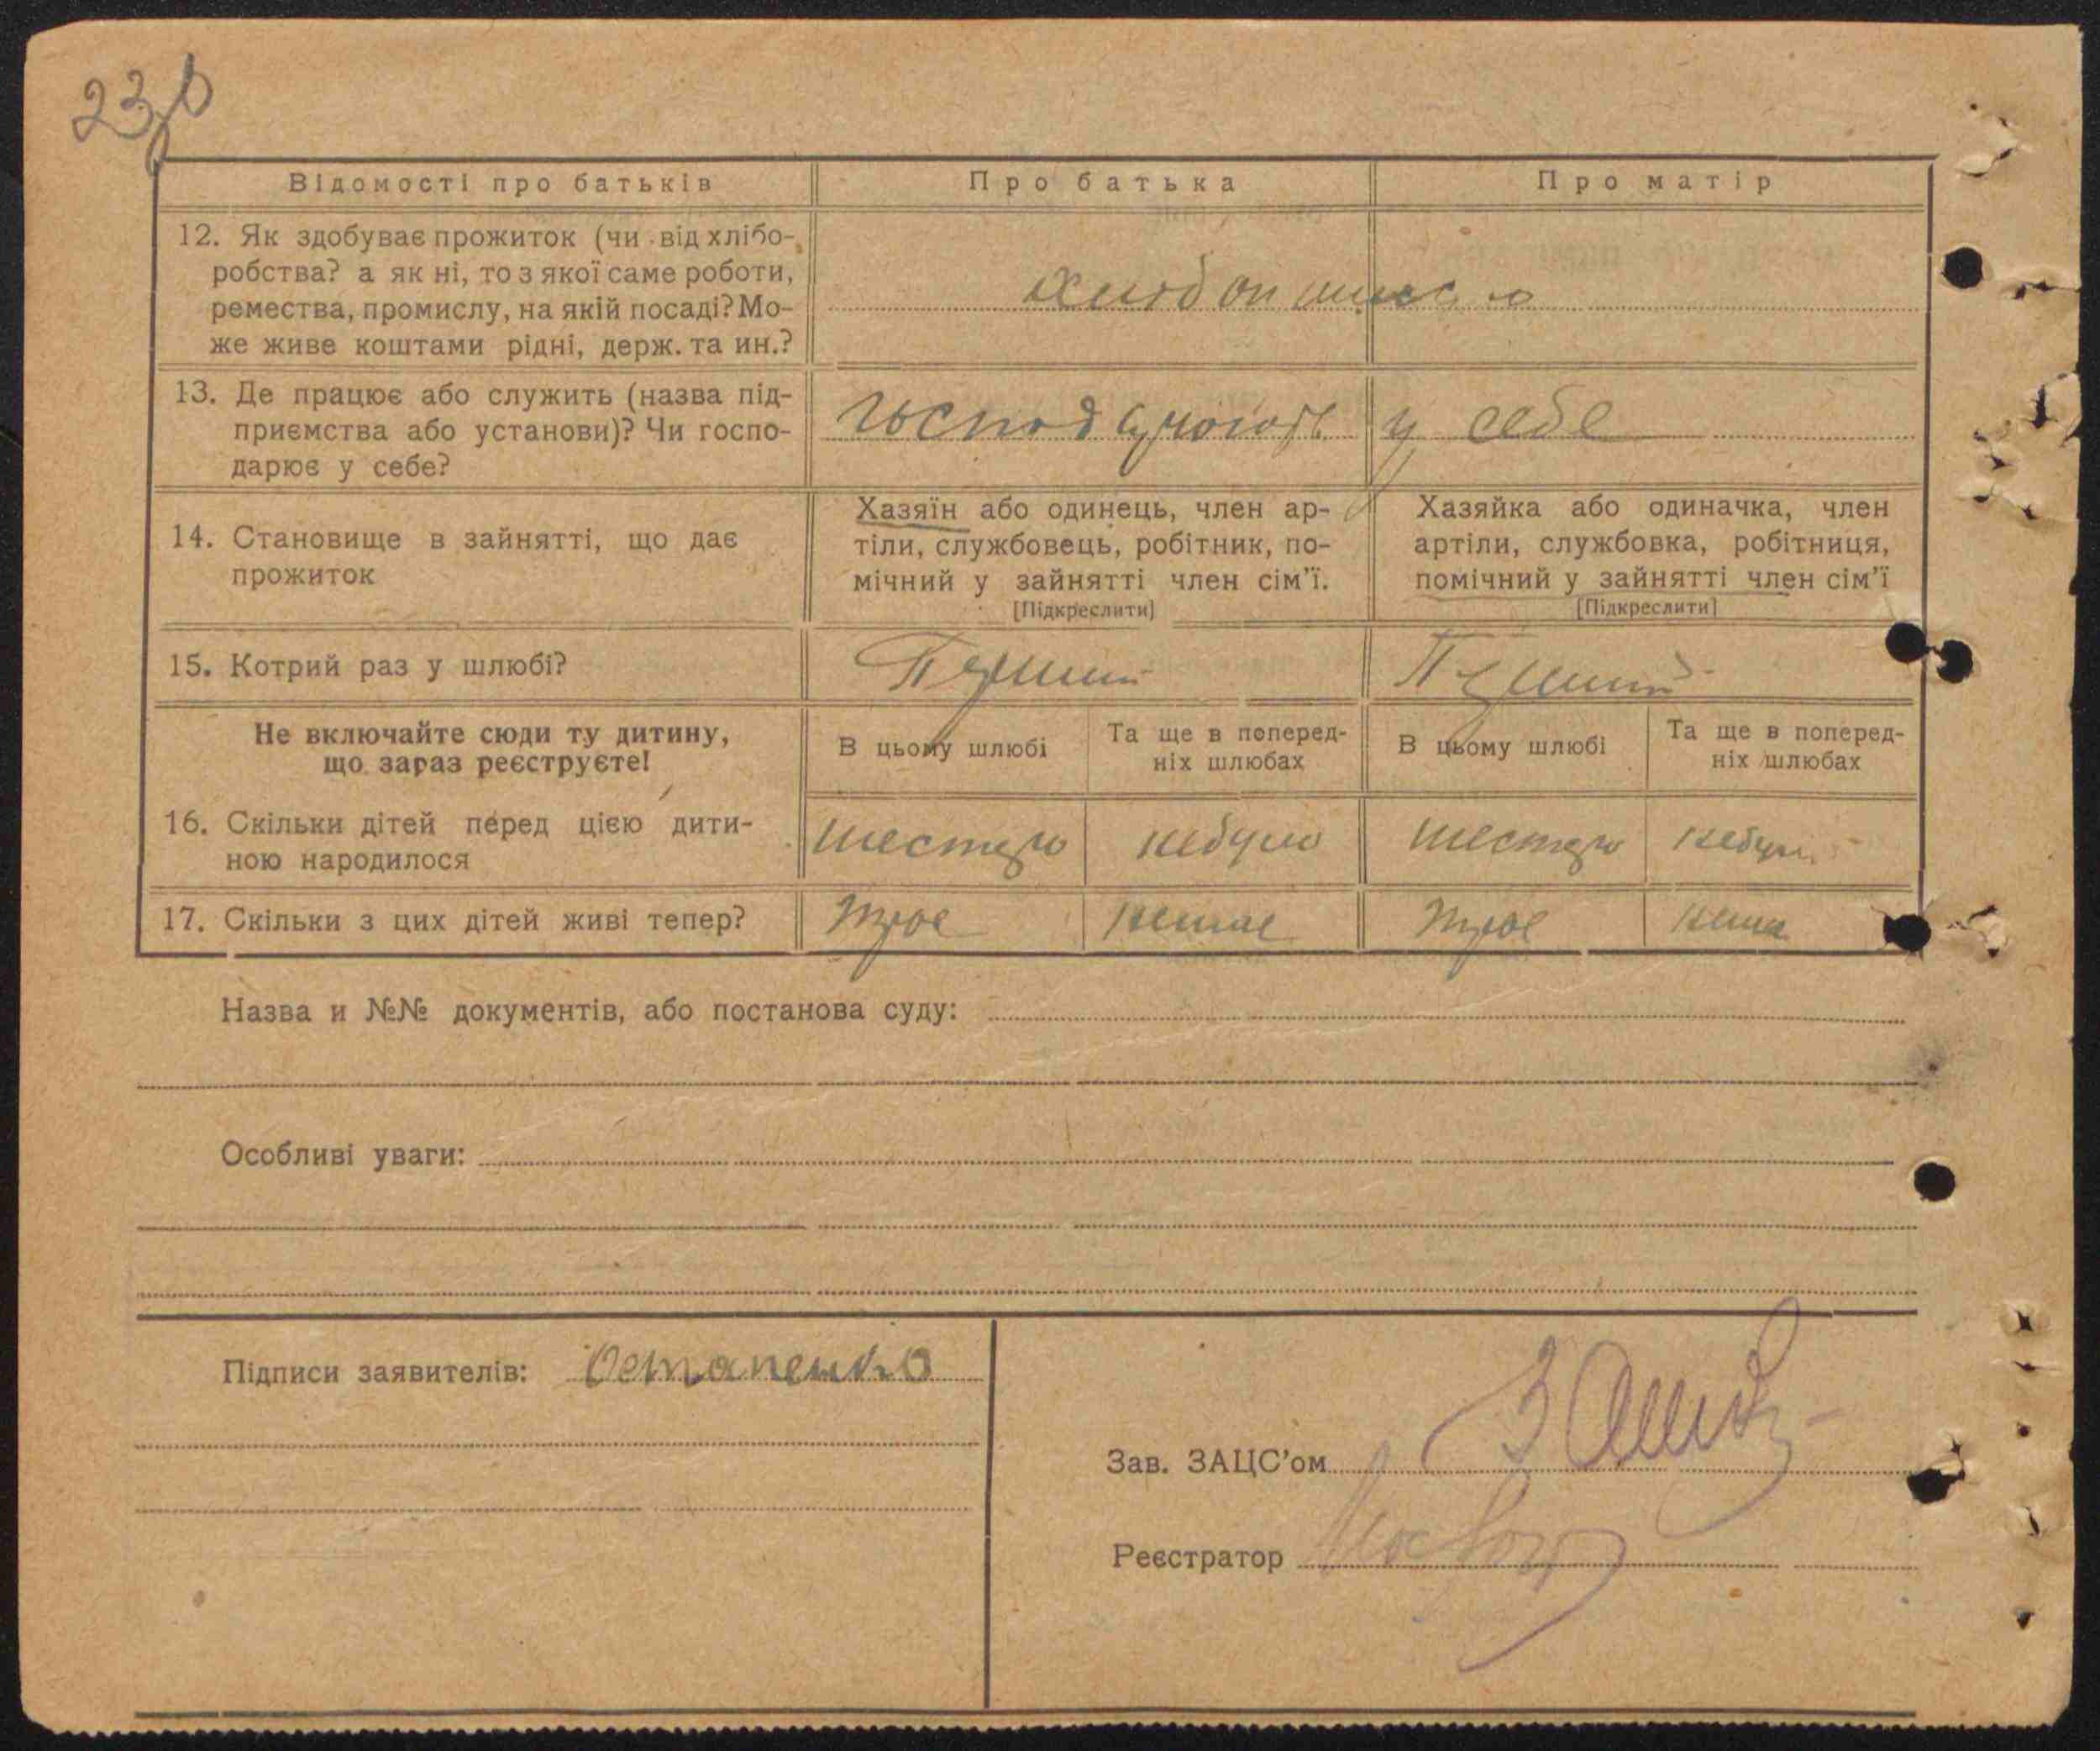 Відомості про батьків Про батька Про матір
12. Як здобуває прожиток (чи від хлібо-
робства? а як ні, то з якої саме роботи,
ремества, промислу, на якій посаді? Мо-
же живе коштами рідні, держ. та ин.?
13. Де працює або служить (назва під-
приємства або установи)? Чи госпо-
дарює у себе?
у себе
14. Становище в зайнятті, що дає
прожиток
Хазяїн або одинець, член ар-
тіли, службовець, робітник, по-
мічний у зайнятті член сім'ї.
[Підкреслити]
Хазяйка або одиначка, член
артіли, службовка, робітниця,
помічний у зайнятті член сім'ї
[Підкреслити]
15. Котрий раз у шлюбі?
Не включайте сюди ту дитину,
що зараз реєструєте!
В цьому шлюбі
Та ще в поперед-
ніх шлюбах
В цьому шлюбі
Та ще в поперед-
ніх шлюбах
16. Скільки дітей перед цією дити-
ною народилося
шестеро небуло шестеро небуло
17. Скільки з цих дітей живі тепер? трое немае трое нема
Назва и №№ документів, або постанова суду:
Особливі уваги:
Підписи заявителів: Остапенко
Зав. ЗАЦС'ом
Реєстратор